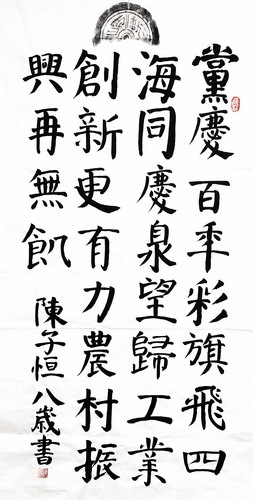 黨慶百年彩旗飛四
海同慶泉望歸工業
創新更有力農村振
興再無飢
陳子恒八歲書